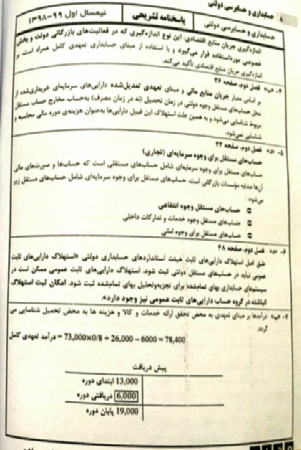 ۸ حسابداری و حسابرسی دولتی
پاسخنامه تشریحی
نیمسال اول ۹۹-۱۳۹۸
حسابداری و حسابرسی دولتی
اندازه‌گیری جریان منابع اقتصادی: این نوع اندازه‌گیری که در فعالیت‌های بازرگانی دولت و بخش
خصوصی مورد استفاده قرار می‌گیرد و با استفاده از مبنای حسابداری تعهدی کامل همراه است، بر
اندازه‌گیری جریان منابع اقتصادی تأکید می‌کند.
فصل دوم، صفحه ۳۶
بر اساس معیار جریان منابع مالی و مبنای تعهدی تعدیل‌شده دارایی‌های سرمایه‌ای خریداری‌شده از
محل حساب‌های مستقل وجوه دولتی در زمان تحصیل (نه در زمان مصرف) به‌حساب مخارج حساب مستقل
مربوط شناسایی می‌شود و به همین علت استهلاک این قبیل دارایی‌ها به‌عنوان هزینه‌ی دوره مالی محاسبه و
شناسایی نمی‌شود.
فصل دوم، صفحه ۲۴
حساب‌های مستقل برای وجوه سرمایه‌ای (تجاری)
حساب‌های مستقل برای وجوه سرمایه‌ای شامل حساب‌های مستقلی است که حساب‌ها و صورت‌های مالی
آن‌ها مشابه مؤسسات بازرگانی است. حساب‌های مستقل برای وجوه سرمایه‌ای شامل حساب‌های مستقل زیر
می‌شود:
حساب‌های مستقل وجوه انتفاعی
حساب‌های مستقل وجوه خدمات و تدارکات داخلی
حساب‌های مستقل برای وجوه امانی
فصل دوم، صفحه ۲۸
طبق اصل استهلاک دارایی‌های ثابت هیئت استانداردهای حسابداری دولتی «استهلاک دارایی‌های ثابت
عمومی نباید در حساب‌های مستقل دولتی ثبت شود. استهلاک دارایی‌های ثابت عمومی ممکن است در
سیستم‌های حسابداری بهای تمام‌شده برای تجزیه‌وتحلیل بهای تمام‌شده ثبت شود. امکان ثبت استهلاک
انباشته در گروه حساب دارایی‌های ثابت عمومی نیز وجود دارد».
درآمدها بر مبنای تعهدی به محض تحقق ارائه خدمات و کالا و هزینه ها به محض تحصیل شناسایی می
گردد
درآمد تعهدی کامل = 73,000×0/8 + 26,000 − 6000 = 78,400
پیش دریافت
13,000 ابتدای دوره
6,000 دریافتی دوره
19,000 پایان دوره